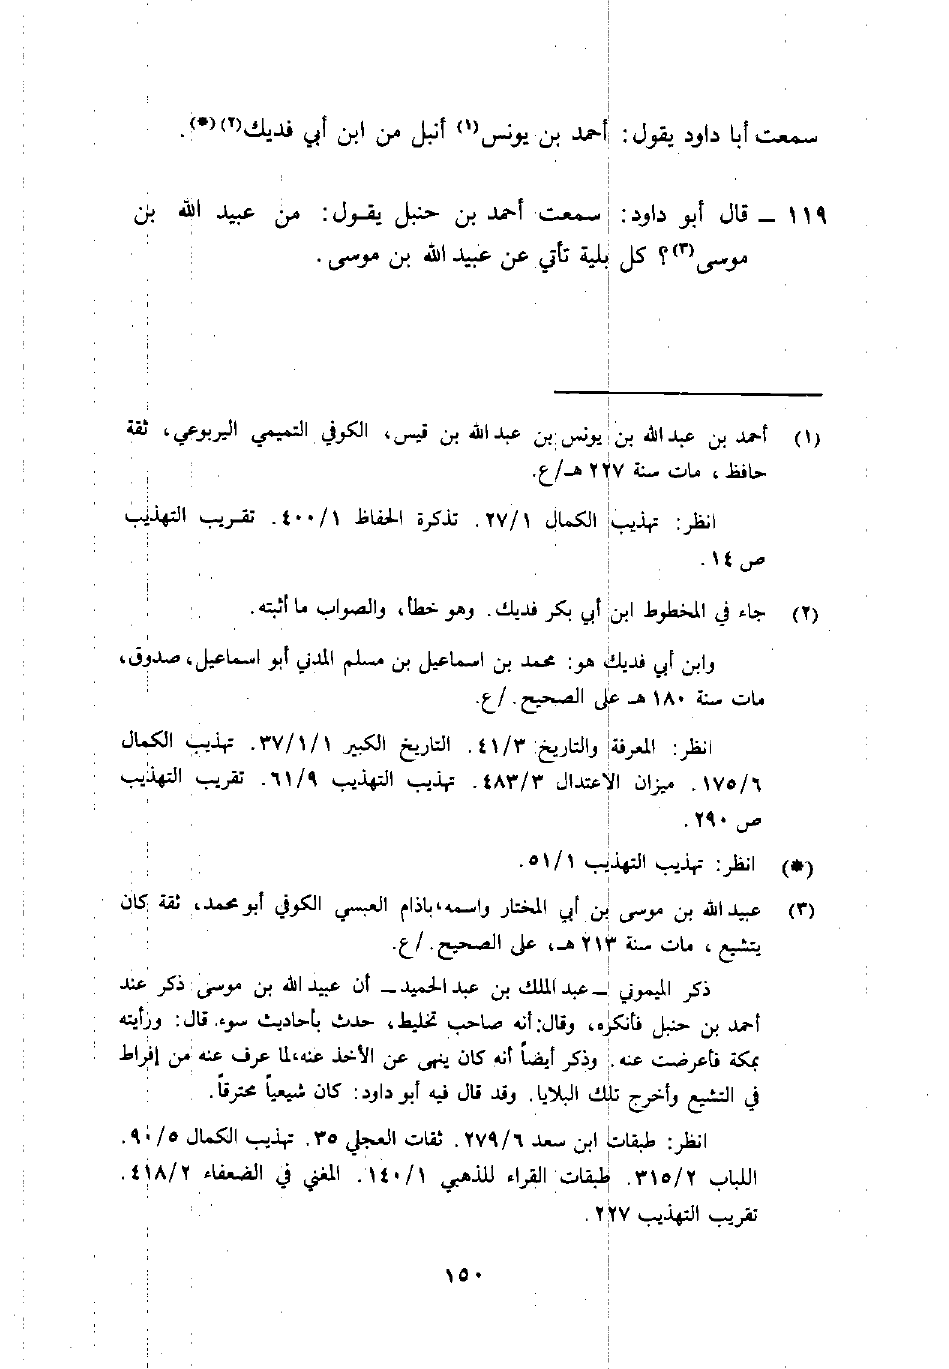 سمعت أبا داود يقول: أحمد بن يونس(١) أنبل من ابن أبي فديك(٢)(*).
١١٩ ــ قال أبو داود: سمعت أحمد بن حنبل يقول: من عبيد الله بن
موسى(٣)؟ كل بلية تأتي عن عبيد الله بن موسى.
(١) أحمد بن عبدالله بن يونس بن عبدالله بن قيس، الكوفي التميمي اليربوعي، ثقة
حافظ، مات سنة ٢٢٧ هـ/ع.
انظر: تهذيب الكمال ٢٧/١. تذكرة الحفاظ ٤٠٠/١. تقريب التهذيب
ص ١٤.
(٢) جاء في المخطوط ابن أبي بكر فديك. وهو خطأ، والصواب ما أثبته.
وابن أبي فديك هو: محمد بن اسماعيل بن مسلم المدني أبو اسماعيل، صدوق،
مات سنة ١٨٠ هـ على الصحيح. /ع.
انظر: المعرفة والتاريخ ٤١/٣. التاريخ الكبير ٣٧/١/١. تهذيب الكمال
١٧٥/٦. ميزان الاعتدال ٤٨٣/٣. تهذيب التهذيب ٦١/٩. تقريب التهذيب
ص ٢٩٠.
(*) انظر: تهذيب التهذيب ٥١/١.
(٣) عبيدالله بن موسى بن أبي المختار واسمه، باذام العبسي الكوفي أبو محمد، ثقة كان
يتشيع، مات سنة ٢١٣ هـ، على الصحيح. /ع.
ذكر الميموني ــ عبدالملك بن عبدالحميد ــ أن عبيدالله بن موسى ذكر عند
أحمد بن حنبل فأنكره، وقال: أنه صاحب تخليط، حدث بأحاديث سوء. قال: ورأيته
بمكة فأعرضت عنه. وذكر أيضاً أنه كان ينهى عن الأخذ عنه، لما عرف عنه من إفراط
في التشيع وأخرج تلك البلايا. وقد قال فيه أبو داود: كان شيعياً محترقاً.
انظر: طبقات ابن سعد ٢٧٩/٦. ثقات العجلي ٣٥. تهذيب الكمال ٩٠/٥.
اللباب ٣١٥/٢. طبقات القراء للذهبي ١٤٠/١. المغني في الضعفاء ٤١٨/٢.
تقريب التهذيب ٢٢٧.
١٥٠